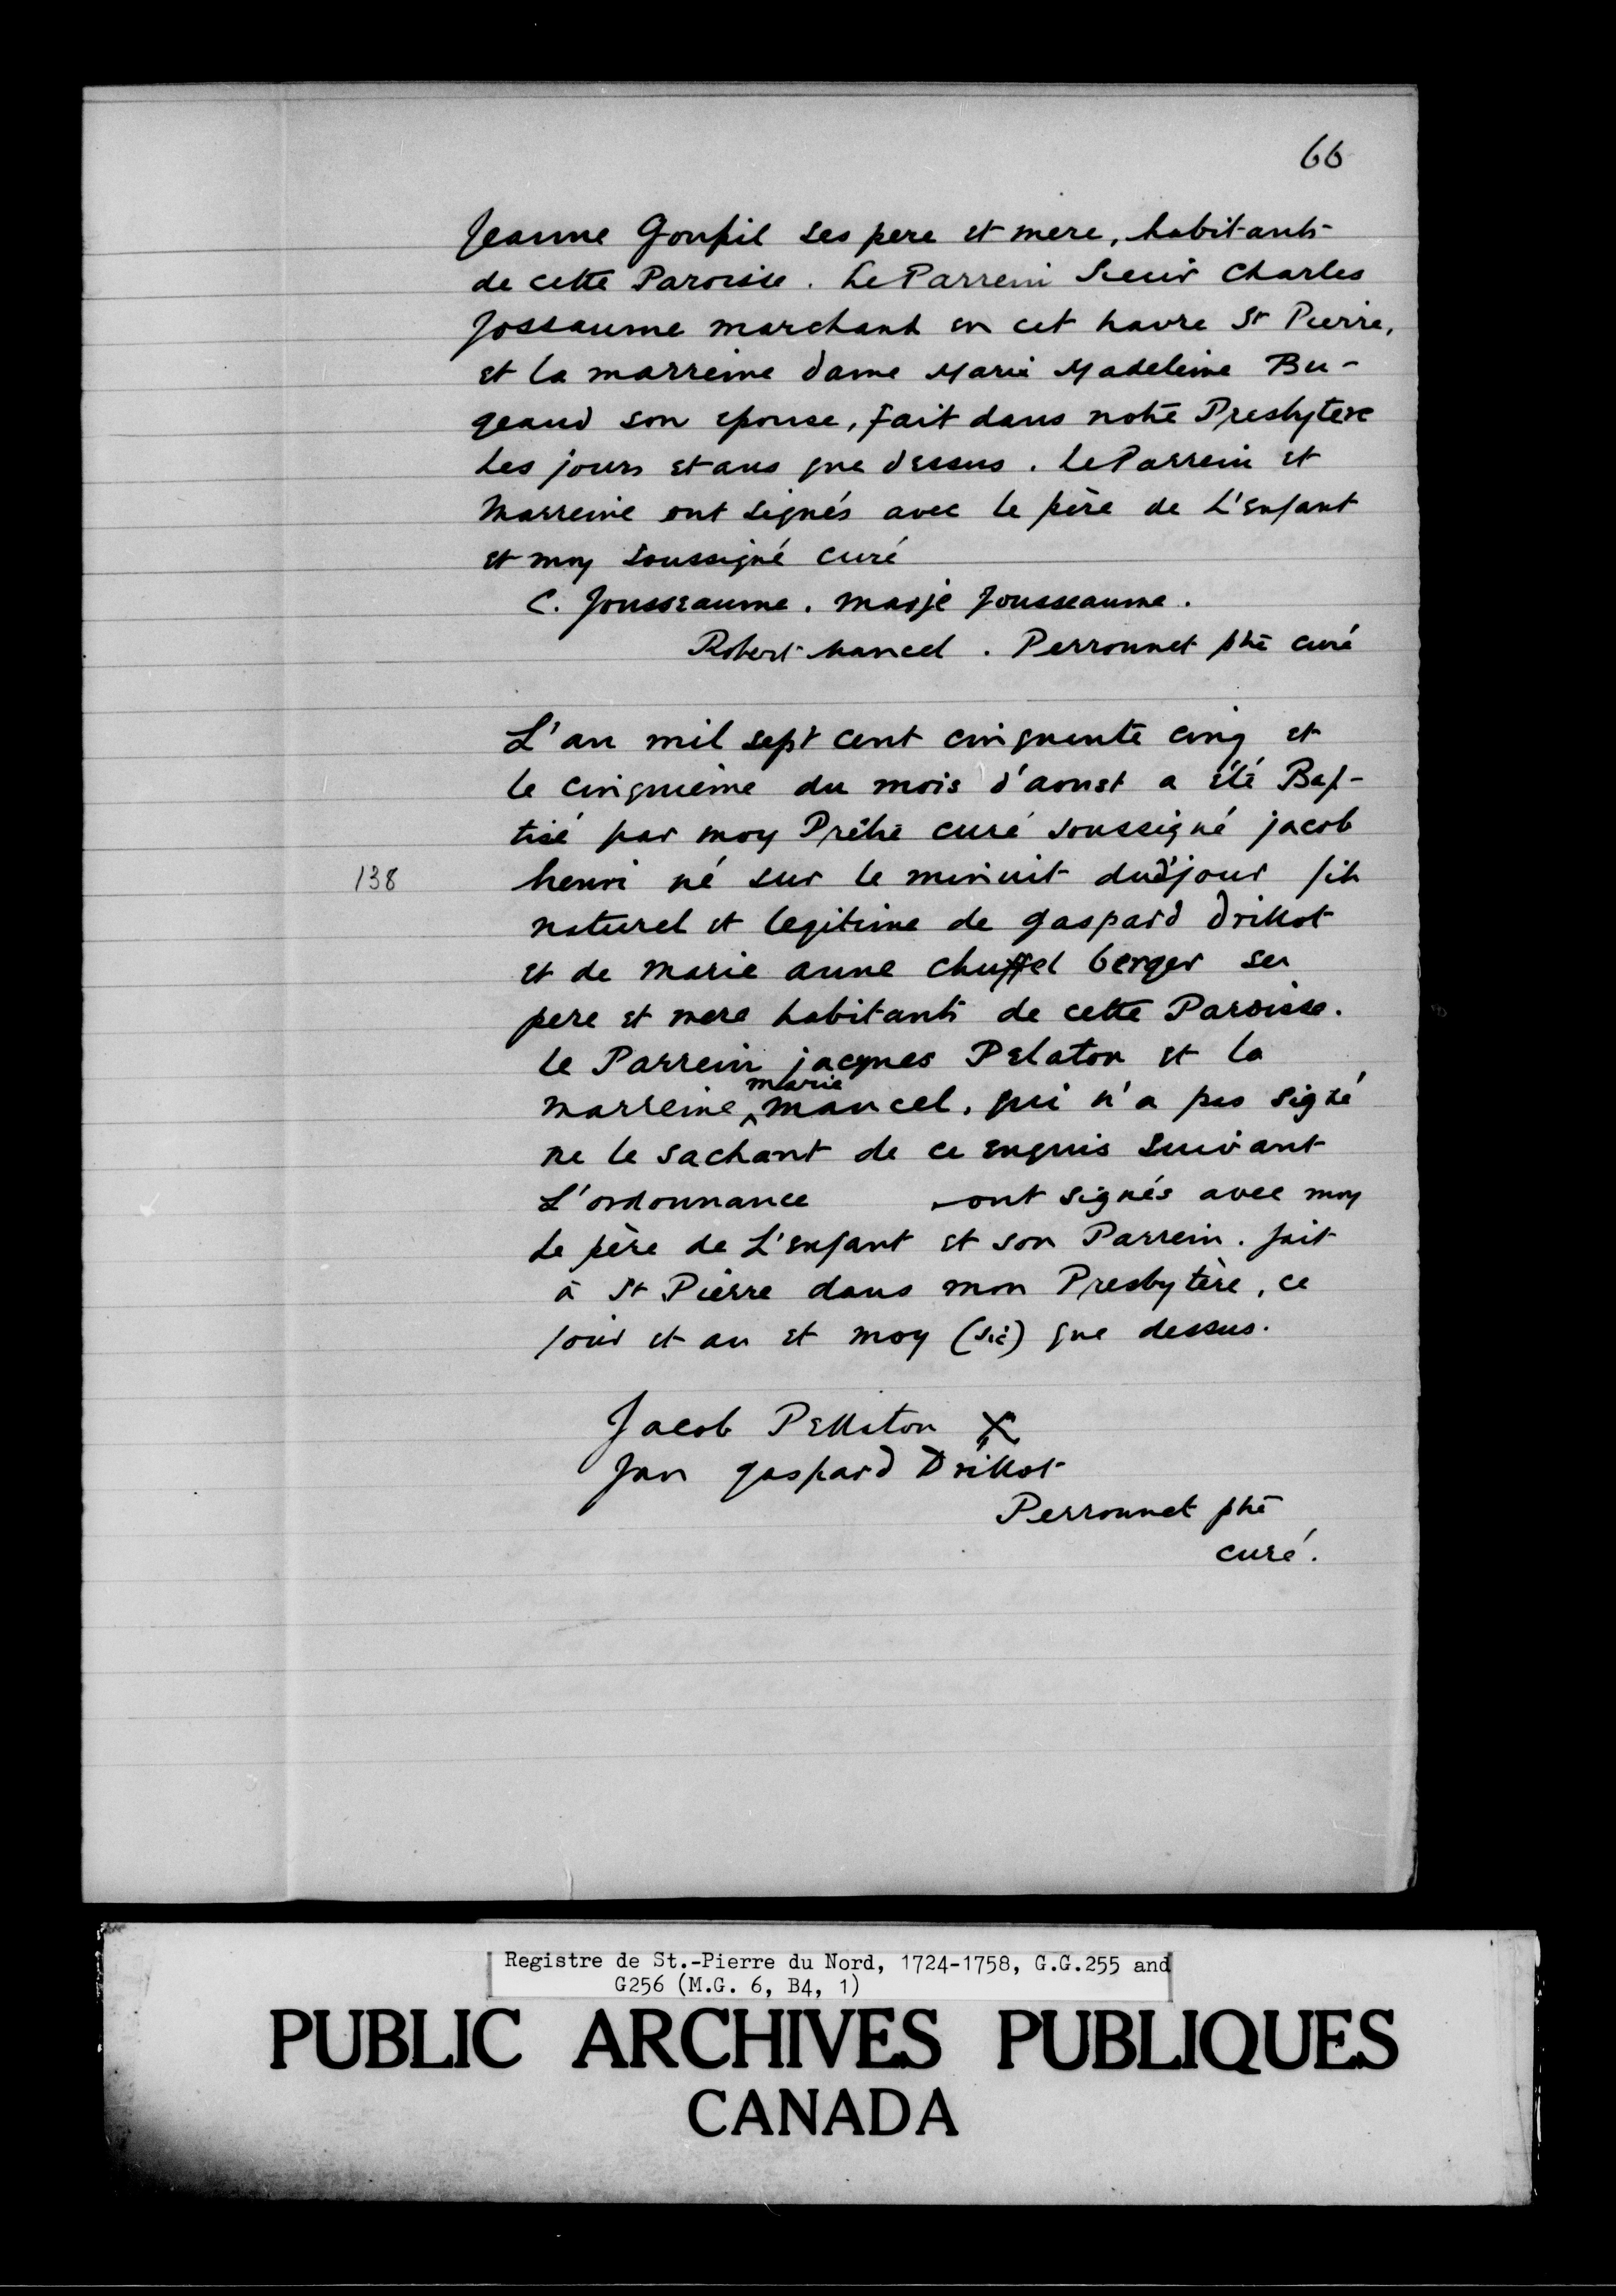 66
Jeanne Goupil ses pere et mere, habitants
de cette Paroisse. Le Parrein Sieur Charles
Jossaume marchand en cet havre St Pierre,
et la marreine dame Marie Madeleine Bu-
geaud son epouse, fait dans notre Presbytere
les jours et ans que dessus. Le Parrein et
Marreine ont signés avec le père de L'enfant
et moy soussigné curé
C. Jousseaume. marje Jousseaume.
Robert mancel. Perronnet ptre curé
L'an mil sept cent cinquente cinq et
le cinquième du mois d'aoust a été Bap-
tisé par moy Prêtre curé soussigné jacob
138 henri né sur le minuit dud'jour fils
naturel et legitime de gaspard drillot
et de marie anne chuffel berger ses
pere et mere habitants de cette Paroisse.
le Parrein jacques Pelaton et la
marreine marie mancel, qui n'a pas signé
ne le sachant de ce enquis suivant
L'ordonnance ont signés avec moy
le père de L'enfant et son Parrein. fait
à St Pierre dans mon Presbytère, ce
jour et an et moy (sic) que dessus.
Jacob Pellaton X
Jan gaspard Drillot
Perronnet ptre
curé.
Registre de St.-Pierre du Nord, 1724-1758, G.G.255 and
G256 (M.G. 6, B4, 1)
PUBLIC ARCHIVES PUBLIQUES
CANADA